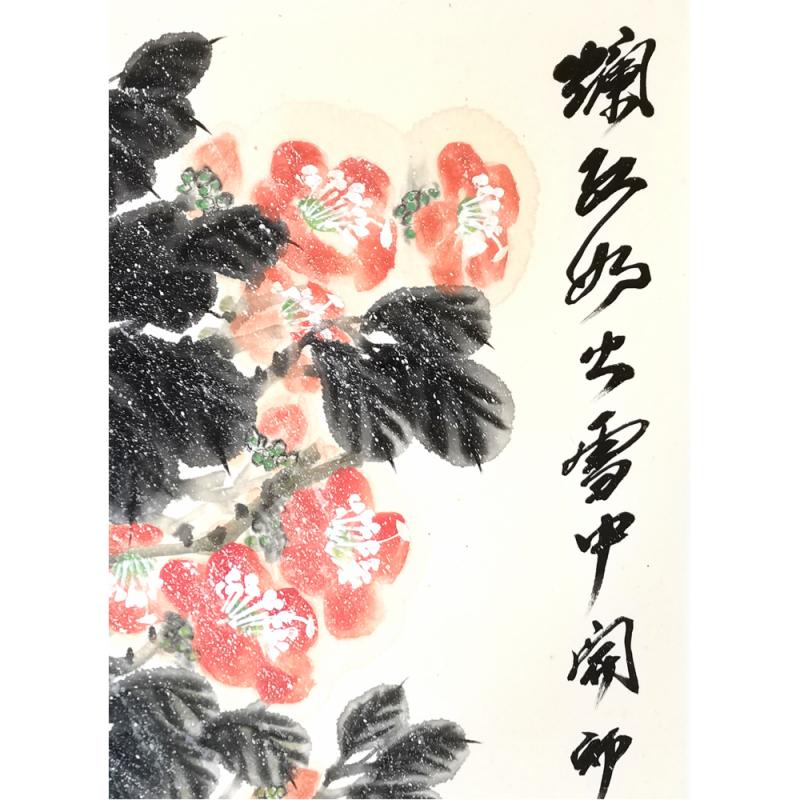 爛紅如火雪中開